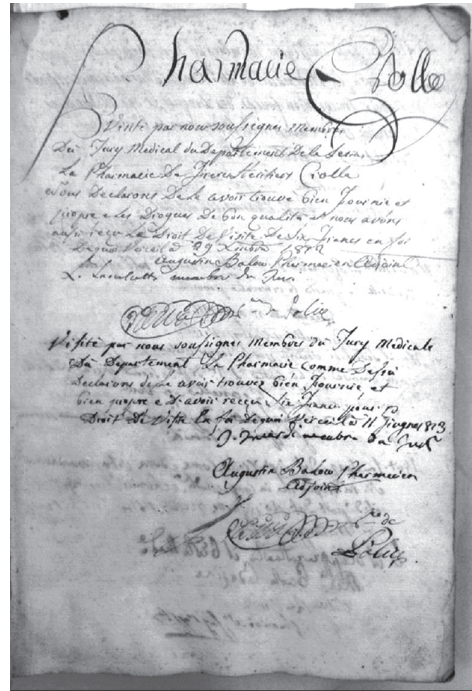 Pharmacie Crolle
Visité par nous sousignes Membres
Du Jury Medical du Departement De la Sesia
La Pharmacie De freres heritiers Crolle
Nous Declarons De l avoir trouvé bien fournie et
propre e les Drogues De bon qualité et nous avons
reçu Le Droit De Visite De six francs en foi
29 Xmbre 1812
Augustin Badow Pharmacien Adjoint
membre du Jury
de Police
Visité par nous sousignes Membres du Jury Medicale
Du Departement La Pharmacie comme Desus
Declarons de avoir trouvez bien fournie et
bien propre e D avoir reçeu six francs pour
Droit De Visite En foi Dequoi Verceil 11 Giugnes 1813
membre du Jury
Augustin Badow Pharmacien
Adjoint
de
Police